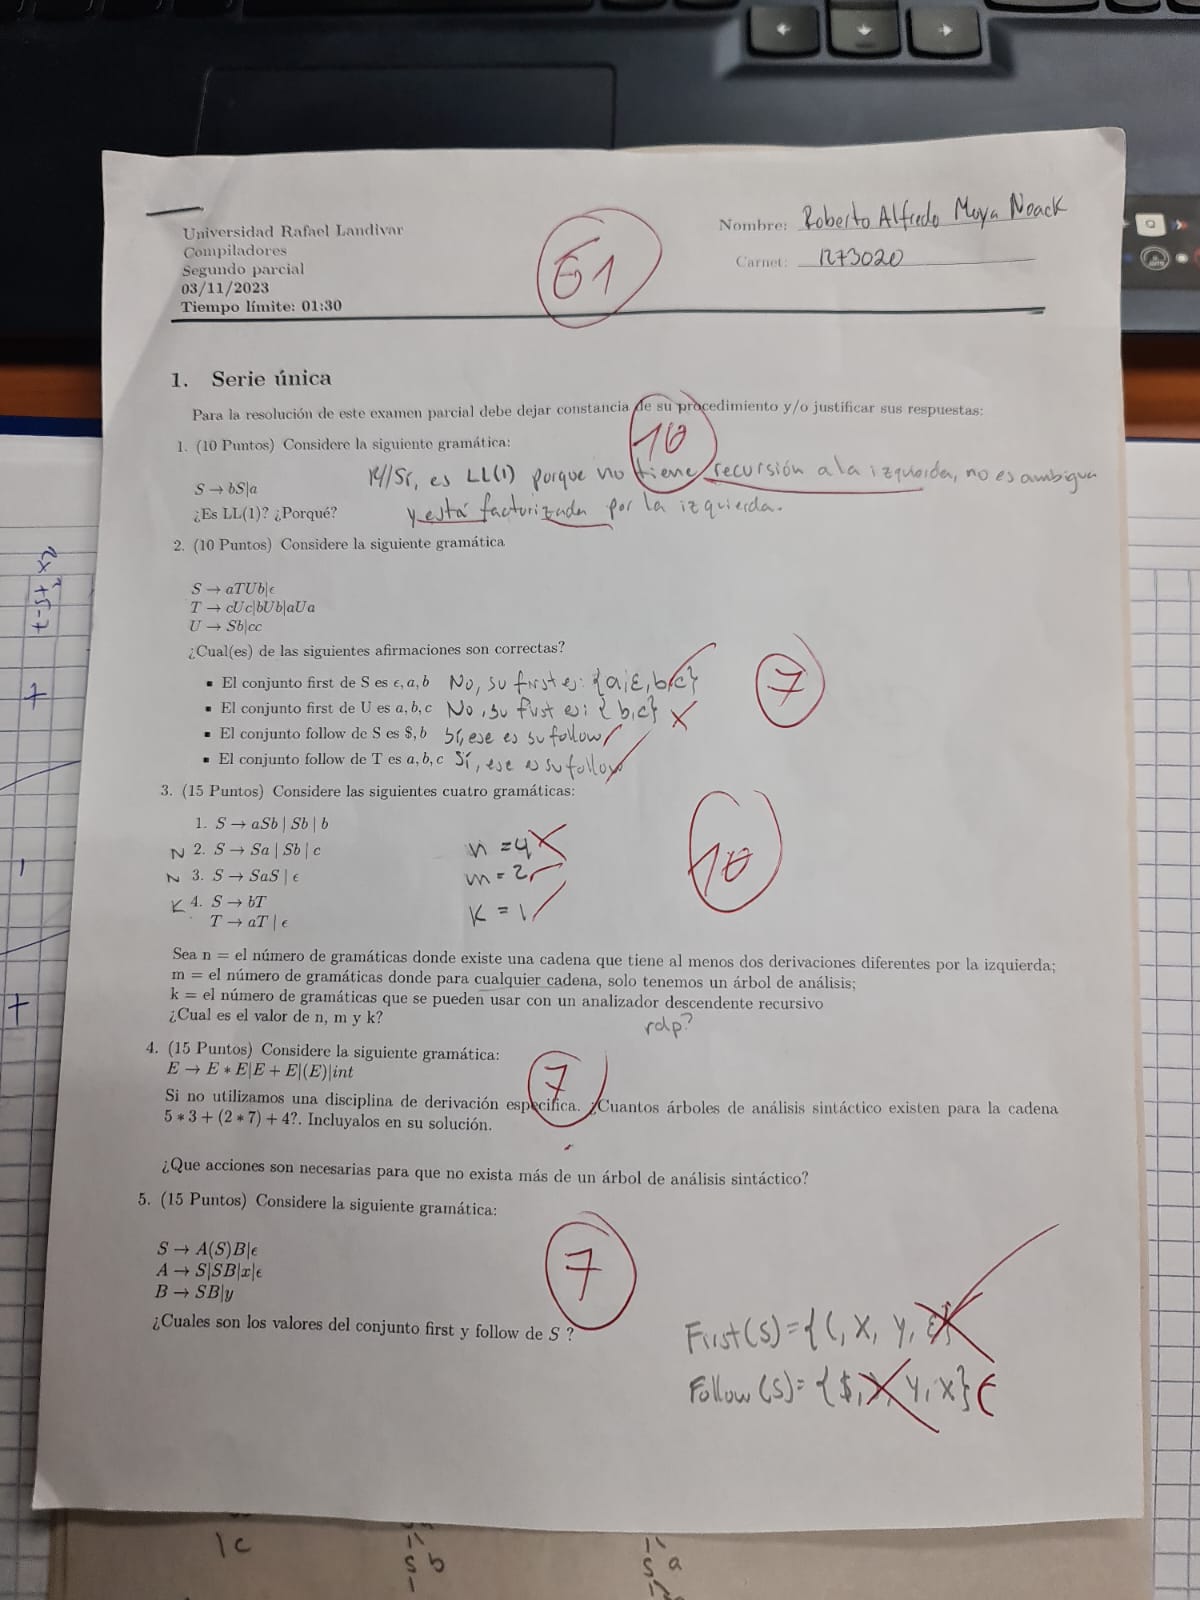 Universidad Rafael Landivar
Compiladores
Segundo parcial
03/11/2023
Tiempo límite: 01:30
61
Nombre: Roberto Alfredo Moya Noack
Carnet: 1273020
1. Serie única
Para la resolución de este examen parcial debe dejar constancia de su procedimiento y/o justificar sus respuestas:
1. (10 Puntos) Considere la siguiente gramática:
10
S → bS|a
¿Es LL(1)? ¿Porqué?
R//Sí, es LL(1) porque no tiene recursión a la izquierda, no es ambigua
y está factorizada por la izquierda.
2. (10 Puntos) Considere la siguiente gramática
S → aTUb|ϵ
T → cUc|bUb|aUa
U → Sb|cc
¿Cual(es) de las siguientes afirmaciones son correctas?
▪ El conjunto first de S es ϵ, a, b No, su first es: {a,ε,b,c}
▪ El conjunto first de U es a, b, c No, su first es: { b,c}
▪ El conjunto follow de S es $, b Sí, ese es su follow
▪ El conjunto follow de T es a, b, c Sí, ese es su follow
7
3. (15 Puntos) Considere las siguientes cuatro gramáticas:
1. S → aSb | Sb | b
N 2. S → Sa | Sb | c n = 4
N 3. S → SaS | ϵ m = 2
K 4. S → bT K = 1
T → aT | ϵ
10
Sea n = el número de gramáticas donde existe una cadena que tiene al menos dos derivaciones diferentes por la izquierda;
m = el número de gramáticas donde para cualquier cadena, solo tenemos un árbol de análisis;
k = el número de gramáticas que se pueden usar con un analizador descendente recursivo
¿Cual es el valor de n, m y k?
rdp?
4. (15 Puntos) Considere la siguiente gramática:
E → E ∗ E|E + E|(E)|int
7
Si no utilizamos una disciplina de derivación especifica. ¿Cuantos árboles de análisis sintáctico existen para la cadena
5 ∗ 3 + (2 ∗ 7) + 4?. Incluyalos en su solución.
¿Que acciones son necesarias para que no exista más de un árbol de análisis sintáctico?
5. (15 Puntos) Considere la siguiente gramática:
S → A(S)B|ϵ
A → S|SB|x|ϵ
B → SB|y
7
¿Cuales son los valores del conjunto first y follow de S ?
First(S)={ (, x, y, ε}
Follow(S)= {$, ), y, x} (
t-s+2 x2
7
+
1c
s b
s a